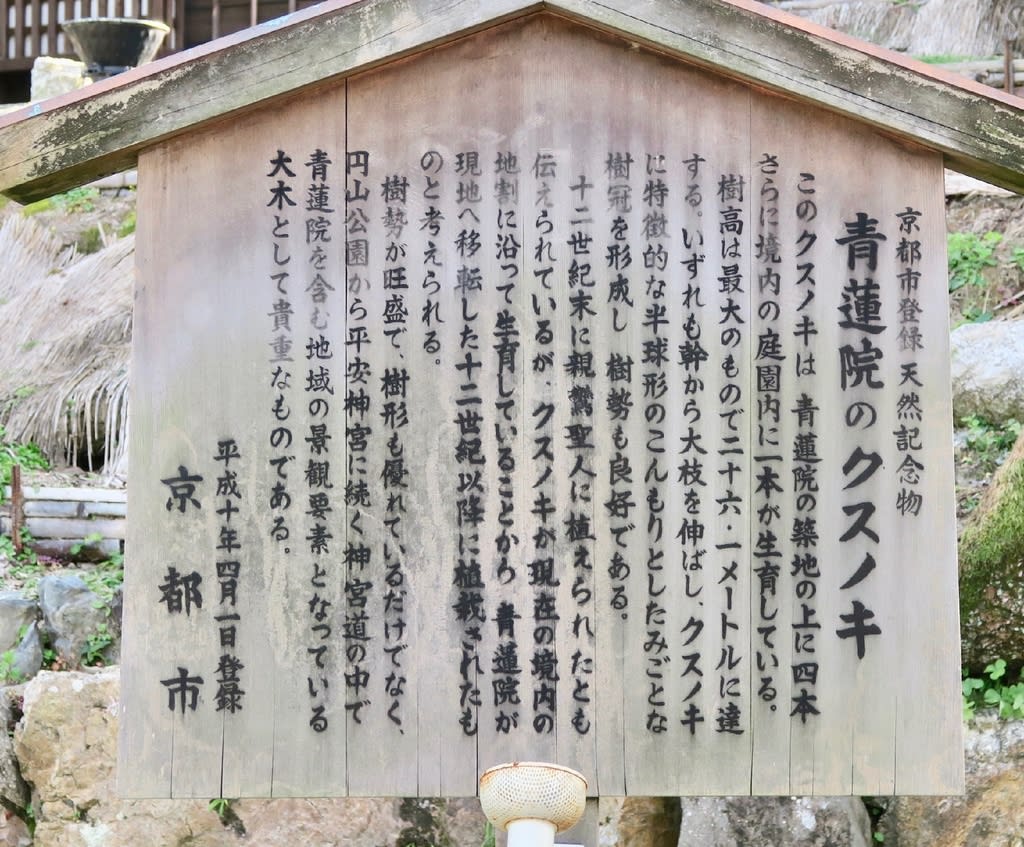 京都市登録 天然記念物
青蓮院のクスノキ
このクスノキは、青蓮院の築地の上に四本
さらに境内の庭園内に一本が生育している。
樹高は最大のもので二十六・一メートルに達
する。いずれも幹から大枝を伸ばし、クスノキ
に特徴的な半球形のこんもりとしたみごとな
樹冠を形成し 樹勢も良好である。
十二世紀末に親鸞聖人に植えられたとも
伝えられているが、クスノキが現在の境内の
地割に沿って生育していることから 青蓮院が
現地へ移転した十二世紀以降に植栽されたも
のと考えられる。
樹勢が旺盛で、樹形も優れているだけでなく、
円山公園から平安神宮に続く神宮道の中で
青蓮院を含む地域の景観要素となっている
大木として貴重なものである。
平成十年四月一日登録
京都市